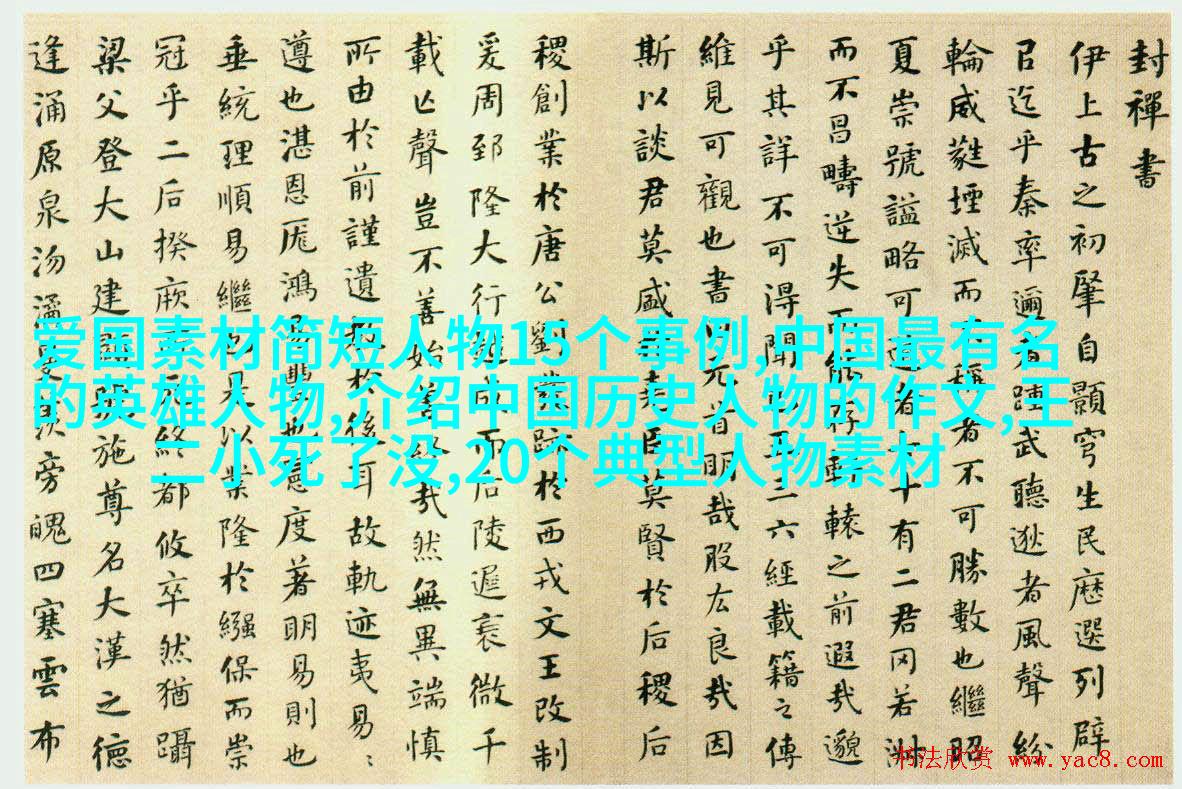 封禪書
伊上古之初肇自顥穹生民歷選列辟
以迄乎秦率邇者踵武聽逖者風聲紛
輪威蕤堙滅而不稱者不可勝數也繼昭
夏崇號謚略可道者七十有二君罔若淑
而不昌疇逆失而能存軒轅之前遐哉邈
乎其詳不可得聞也五三六經載籍之傳
維見可觀也書曰元首明哉股厷良哉因
斯以談君莫盛於堯臣莫賢於后稷后
稷創業於唐公劉發跡於西戎文王改制
爰周郅隆大行越成而后陵遲衰微千
載亡聲豈不善始善終哉然無異端慎
所由於前謹遺教於後耳故軌迹夷易
遵也湛恩厖鴻易豐也憲度著明易則也
垂統理順易繼也是以業隆於繈保而崇
冠乎二后揆厥所元終都攸卒然猶躡
梁父登大山建顯號施尊名大漢之德
逢涌原泉沕潏曼羨旁魄四塞雲布
爱国素材简短人物15个事例,中国最有名
的英雄人物,介绍中国历史人物的作文,王
二小死了没,20个典型人物素材
书法欣赏 www.yac8.com